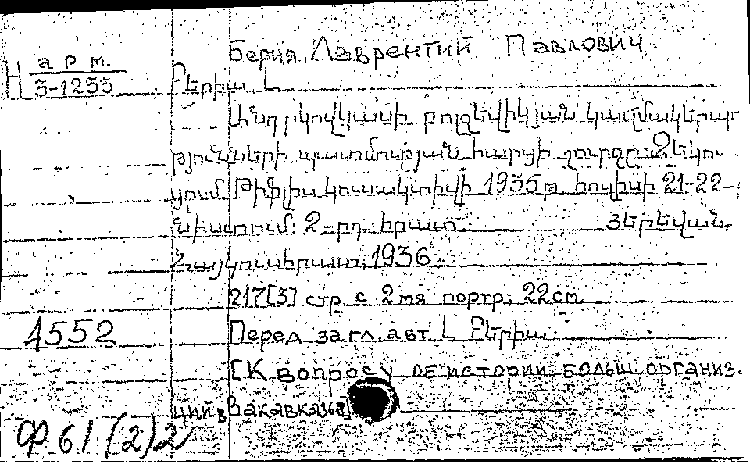 Берия, Лаврентий Павлович
Н арм.
3-1253
Բերիա Լ.
Անդրկովկասի բոլշևիկյան կազմակերպու
թյունների պատմության հարցի շուրջը. Զեկու
ցում Թիֆլիս կուսակտիվի 1935 թ. հուլիսի 21-22-ի
նիստում: 2-րդ հրատ. Յերեվան.
Հայկուսհրատ, 1936
217[3] стр. с 2мя портр. 22см
4552
Перед загл. авт. Լ. Բերիա
[К вопросу об истории больш. организ.
ций в Закавказье]
Ф 61 (2)2